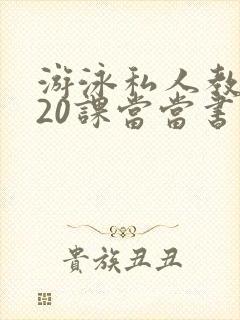 游泳私人教
20課當當書
貴族丑丑